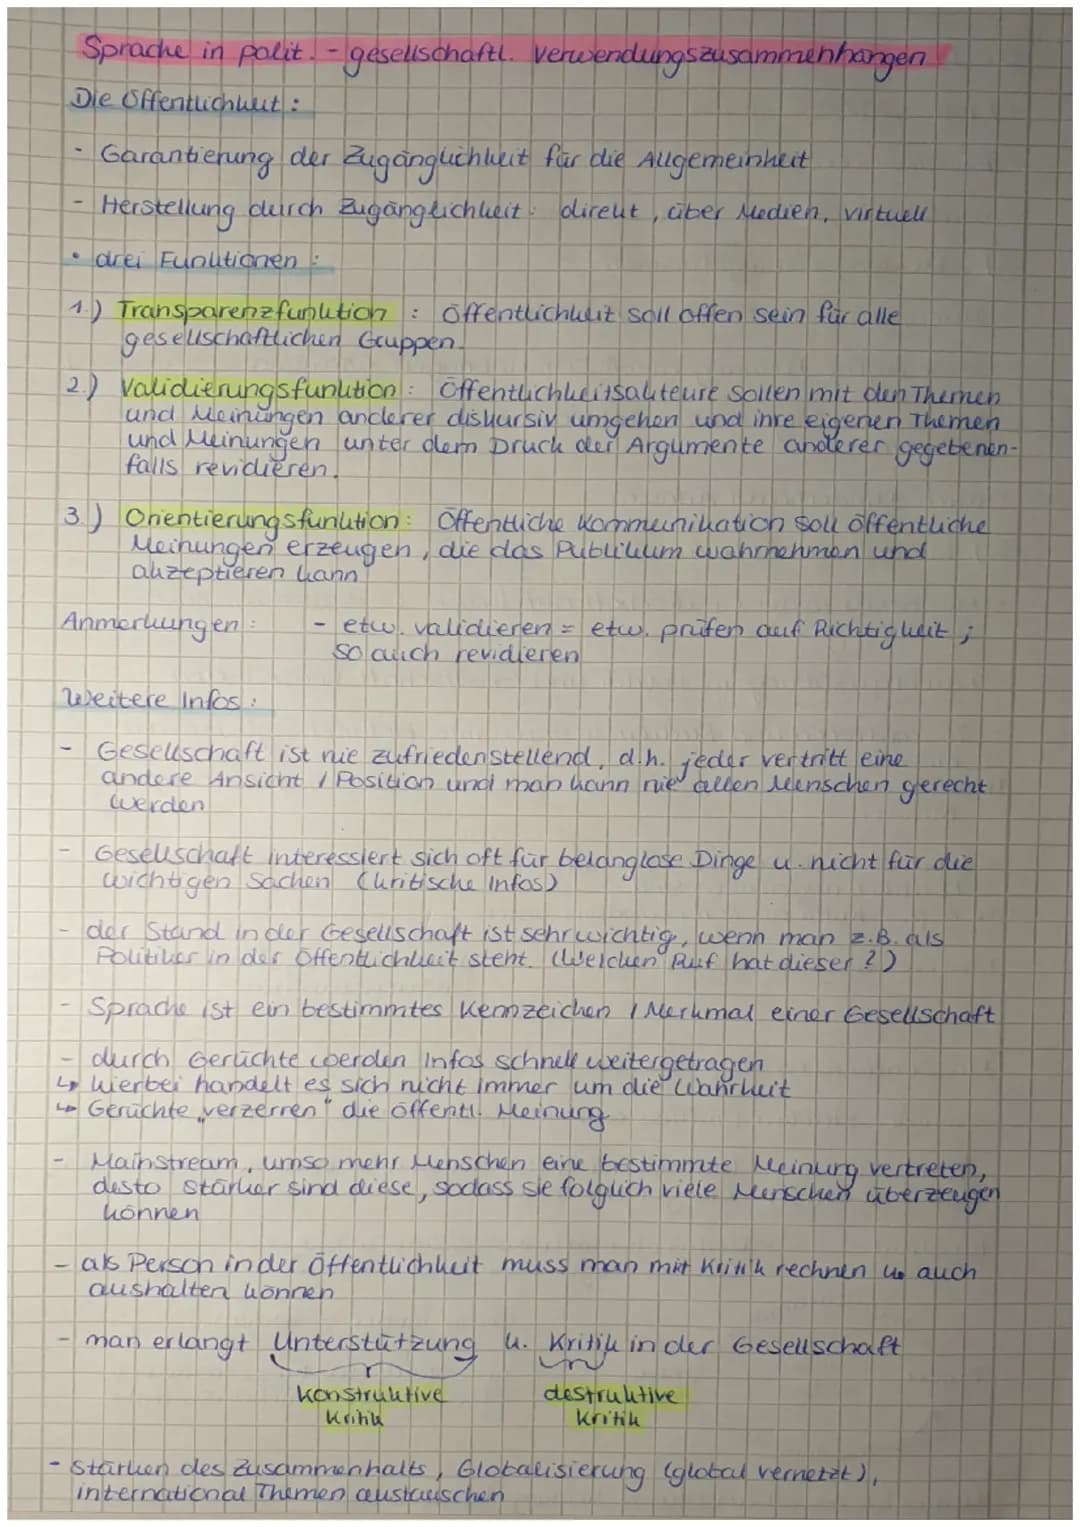 Sprache in polit. - gesellschaftl. Verwendungszusammenhängen
Die Öffentlichkeit:
- Garantierung der Zugänglichkeit für die Allgemeinheit
- Herstellung durch Zugänglichkeit: direkt, über Medien, virtuell
• drei Funktionen:
1.) Transparenzfunktion: Öffentlichkeit soll offen sein für alle
gesellschaftlichen Gruppen.
2.) Validierungsfunktion: Öffentlichkeitsakteure sollen mit den Themen
und Meinungen anderer diskursiv umgehen und ihre eigenen Themen
und Meinungen unter dem Druck der Argumente anderer gegebenen-
falls revidieren.
3.) Orientierungsfunktion: Öffentliche Kommunikation soll öffentliche
Meinungen erzeugen, die das Publikum wahrnehmen und
akzeptieren kann
Anmerkungen: - etw. validieren = etw. prüfen auf Richtigkeit;
so auch revidieren
Weitere Infos:
- Gesellschaft ist nie zufriedenstellend, d.h. jeder vertritt eine
andere Ansicht / Position und man kann nie allen Menschen gerecht
werden
- Gesellschaft interessiert sich oft für belanglose Dinge u. nicht für die
wichtigen Sachen (kritische Infos)
- der Stand in der Gesellschaft ist sehr wichtig, wenn man z.B. als
Politiker in der Öffentlichkeit steht. (Welchen Ruf hat dieser?)
- Sprache ist ein bestimmtes Kennzeichen / Merkmal einer Gesellschaft
- durch Gerüchte werden Infos schnell weitergetragen
↳ hierbei handelt es sich nicht immer um die Wahrheit
↳ Gerüchte „verzerren" die öffentl. Meinung
- Mainstream, umso mehr Menschen eine bestimmte Meinung vertreten,
desto stärker sind diese, sodass sie folglich viele Menschen überzeugen
können
- als Person in der Öffentlichkeit muss man mit Kritik rechnen u. auch
aushalten können
- man erlangt Unterstützung u. Kritik in der Gesellschaft
konstruktive destruktive
Kritik Kritik
- stärken des Zusammenhalts, Globalisierung (global vernetzt),
international Themen austauschen